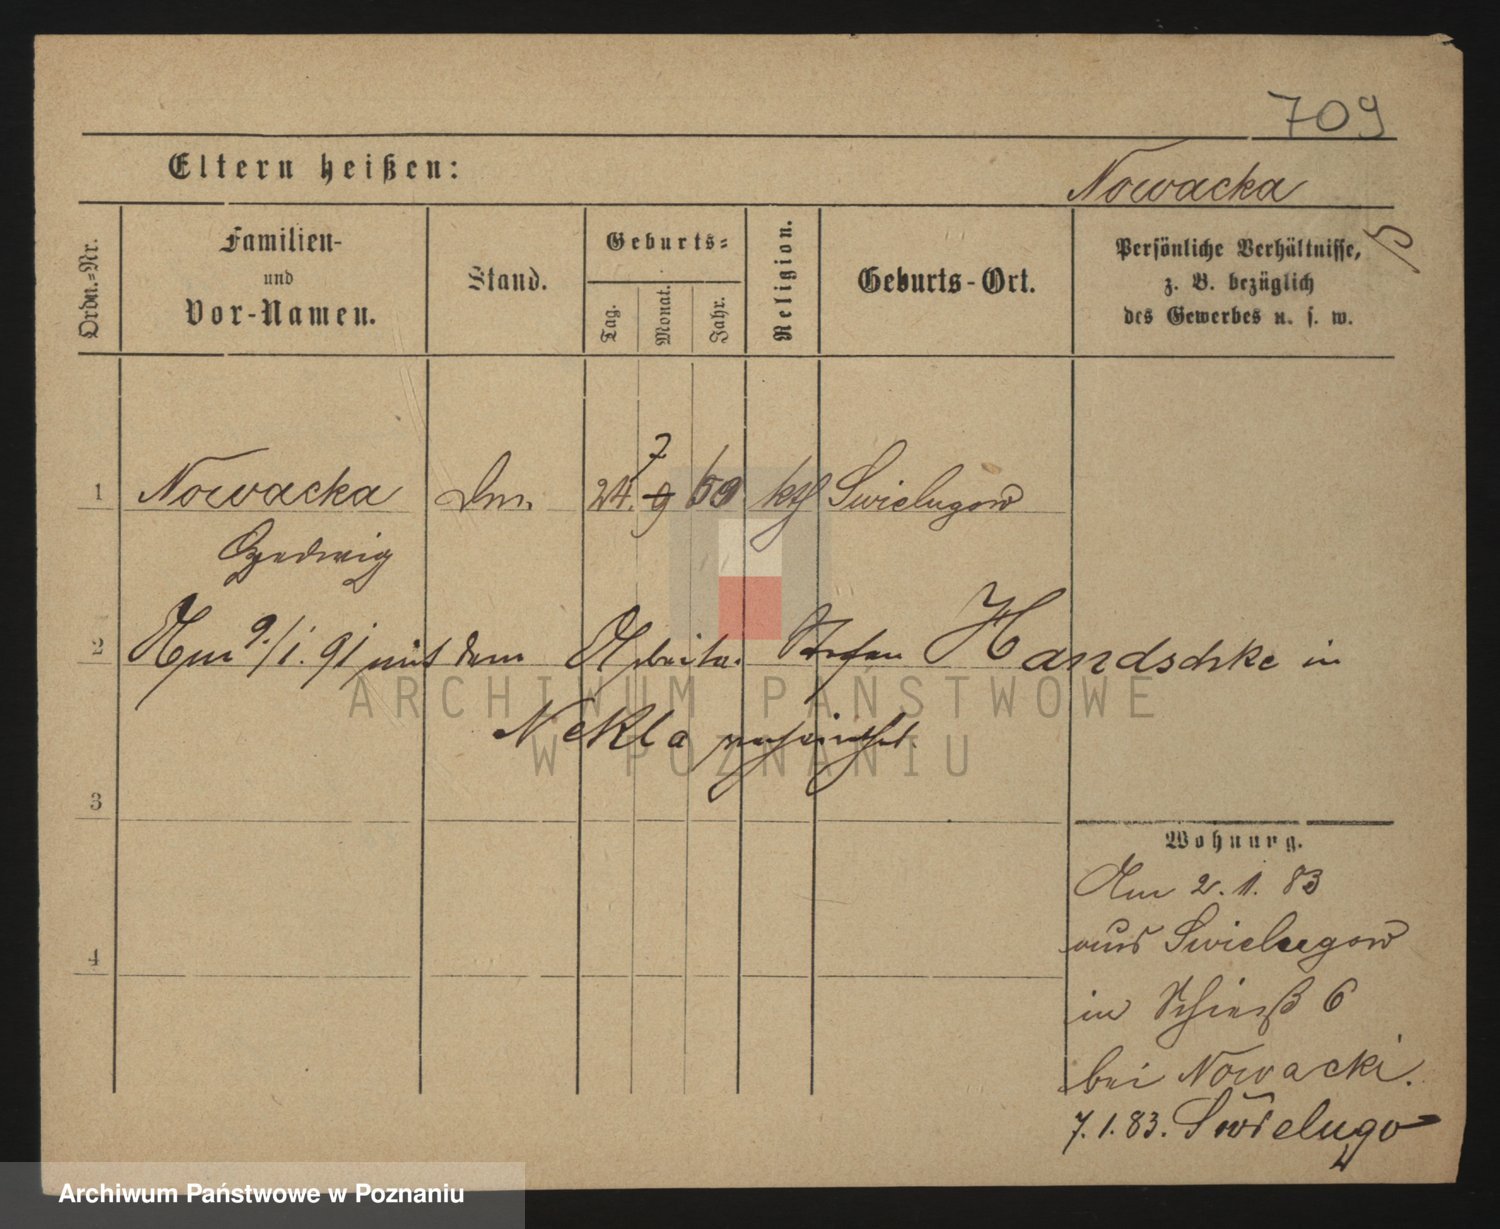 709
Eltern heißen:
Nowacka
Ordn.-Nr.
Familien-
und
Vor-Namen.
Stand.
Geburts-
Tag.
Monat.
Jahr.
Religion.
Geburts-Ort.
Persönliche Verhältnisse,
z. B. bezüglich
des Gewerbes u. s. w.
7
1 Nowacka 24. 9 59 kth Swielugow
Hedwig
2 Am 9./1. 91 mit dem Arbeiter Stefan Handschke in
Nekla verheirathet.
3
4
Wohnung.
Am 2. 1. 83
aus Swielugow
in Schieß 6
bei Nowacki.
7.1.83. Swielugo
ARCHIWUM PAŃSTWOWE
W POZNANIU
Archiwum Państwowe w Poznaniu